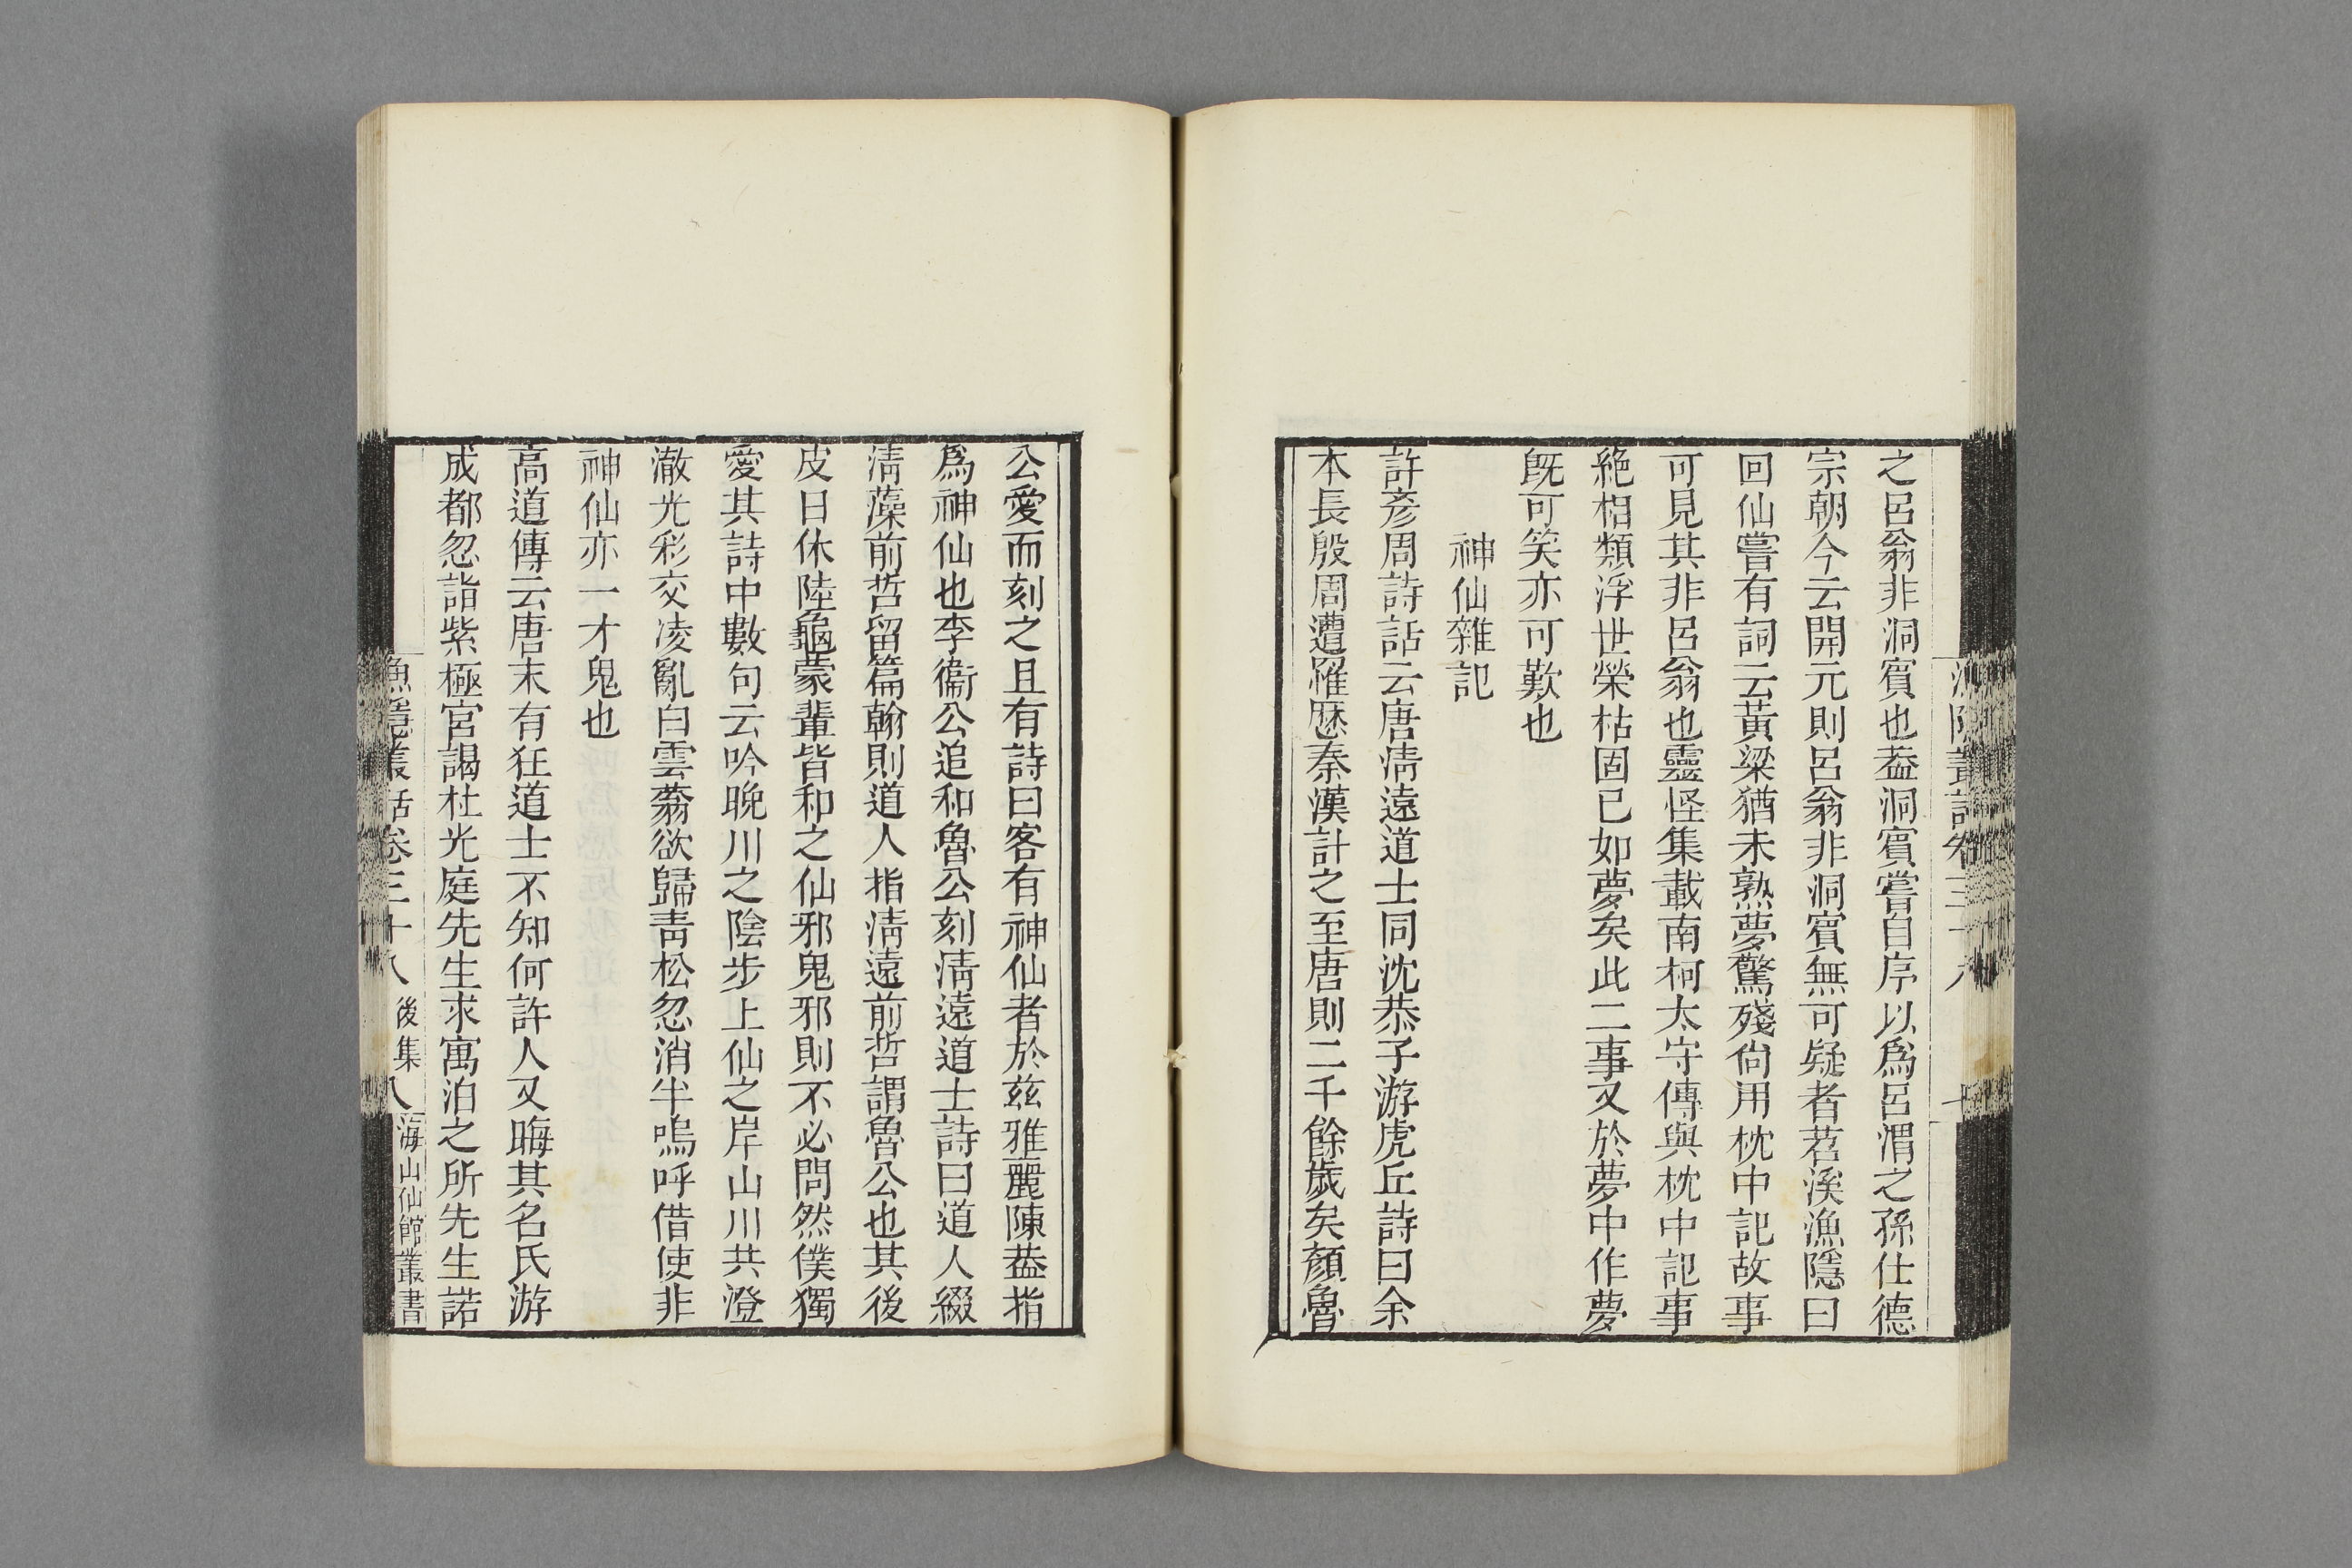 之呂翁非洞賓也葢洞賓嘗自序以爲呂渭之孫仕德
宗朝今云開元則呂翁非洞賓無可疑者苕溪漁隱曰
回仙嘗有詞云黃粱猶未熟夢驚殘尙用枕中記故事
可見其非呂翁也靈怪集載南柯太守傳與枕中記事
絶相類浮世榮枯固已如夢矣此二事又於夢中作夢
旣可笑亦可歎也
神仙雜記
許彥周詩話云唐淸遠道士同沈恭子游虎丘詩曰余
本長殷周遭羅歷秦漢計之至唐則二千餘歲矣顏魯
公愛而刻之且有詩曰客有神仙者於兹雅麗陳葢指
爲神仙也李衞公追和魯公刻淸遠道士詩曰道人綴
淸藻前哲留篇翰則道人指淸遠前哲謂魯公也其後
皮日休陸龜蒙輩皆和之仙邪鬼邪則不必問然僕獨
愛其詩中數句云吟晚川之陰步上仙之岸山川共澄
澈光彩交凌亂白雲蓊欲歸靑松忽消半嗚呼借使非
神仙亦一才鬼也
高道傳云唐末有狂道士不知何許人又晦其名氏游
成都忽詣紫極宮謁杜光庭先生求寓泊之所先生諾
漁隱叢話卷三十八 後集 八 海山仙館叢書